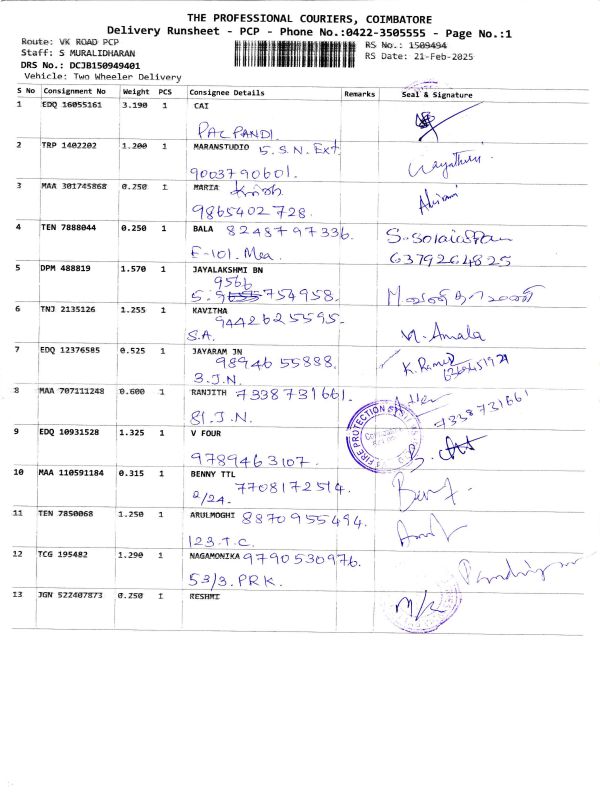 THE PROFESSIONAL COURIERS, COIMBATORE
Delivery Runsheet - PCP - Phone No.:0422-3505555 - Page No.:1
Route: VK ROAD PCP
RS No.: 1509494
Staff: S MURALIDHARAN
RS Date: 21-Feb-2025
DRS No.: DCJB150949401
Vehicle: Two Wheeler Delivery
S No Consignment No Weight PCS Consignee Details Remarks Seal & Signature
1 EDQ 16055161 3.190 1 CAI
PALPANDI
2 TRP 1402202 1.200 1 MARANSTUDIO S.S.N. Ext
9003790601.
3 MAA 301745868 0.250 1 MARIA
9865402728.
4 TEN 7888044 0.250 1 BALA 8248797336.
E-101. Mea.
6379264825
5 DPM 488819 1.570 1 JAYALAKSHMI BN
9566
5. 9655754958.
6 TNJ 2135126 1.255 1 KAVITHA
9442625595. N. Amala
S.A.
7 EDQ 12376585 0.525 1 JAYARAM JN
9894655888. K. Ramesh
3.J.N.
8 MAA 707111248 0.600 1 RANJITH 7338731661.
81.J.N. 7338731661
FIRE PROTECTION
9 EDQ 10931528 1.325 1 V FOUR
9789463107.
10 MAA 110591184 0.315 1 BENNY TTL
2/24. 7708172514.
11 TEN 7850068 1.250 1 ARULMOGHI 8870955494.
123.T.C.
12 TCG 195482 1.290 1 NAGAMONIKA 9790530976.
53/3. PRK.
13 JGN 522407873 0.250 1 RESHMI